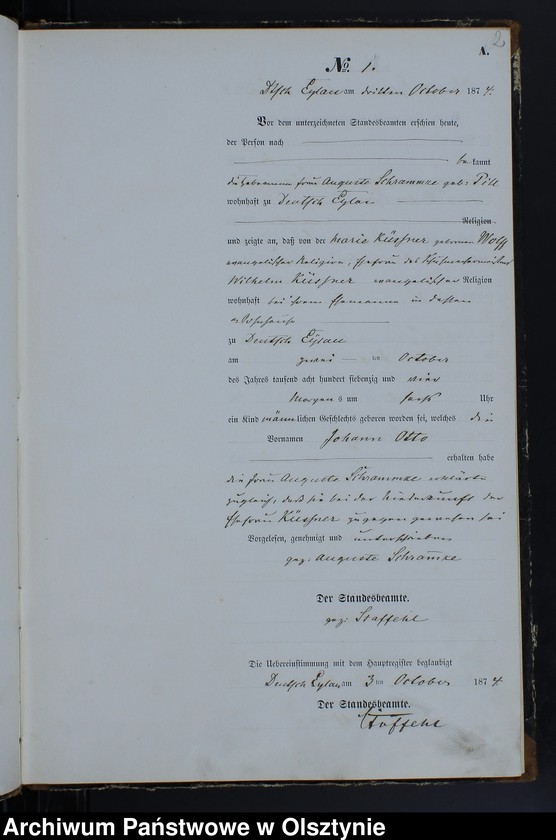 2
A.
No 1.
Dtsch Eylau am dritten October 1874.
Vor dem unterzeichneten Standesbeamten erschien heute,
der Person nach
bekannt
die Hebamme Frau Auguste Schrammke geb: Pill
wohnhaft zu Deutsch Eylau
Religion
und zeigte an, daß von der Marie Küssner geborenen Wolff
evangelischer Religion, Ehefrau des
Wilhelm Küssner evangelischer Religion
wohnhaft bei ihrem Ehemanne in dessen
Wohnhause
zu Deutsch Eylau
am zwei ten October
des Jahres tausend acht hundert siebenzig und vier
Morgens um sechs Uhr
ein Kind männlichen Geschlechts geboren worden sei, welches die
Vornamen Johann Otto
erhalten habe
die Frau Auguste Schrammke erklärte
zugleich, daß sie bei der Niederkunft der
Ehefrau Küssner zugegen gewesen sei
Vorgelesen, genehmigt und unterschrieben
gez: Auguste Schram̄ke
Der Standesbeamte.
gez: Staffehl
Die Uebereinstimmung mit dem Hauptregister beglaubigt
Deutsch Eylau am 3 ten October 1874
Der Standesbeamte.
Staffehl
Archiwum Państwowe w Olsztynie